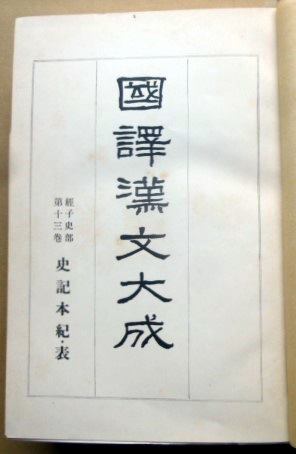 國譯漢文大成
經子史部
第十三卷
史記本紀・表